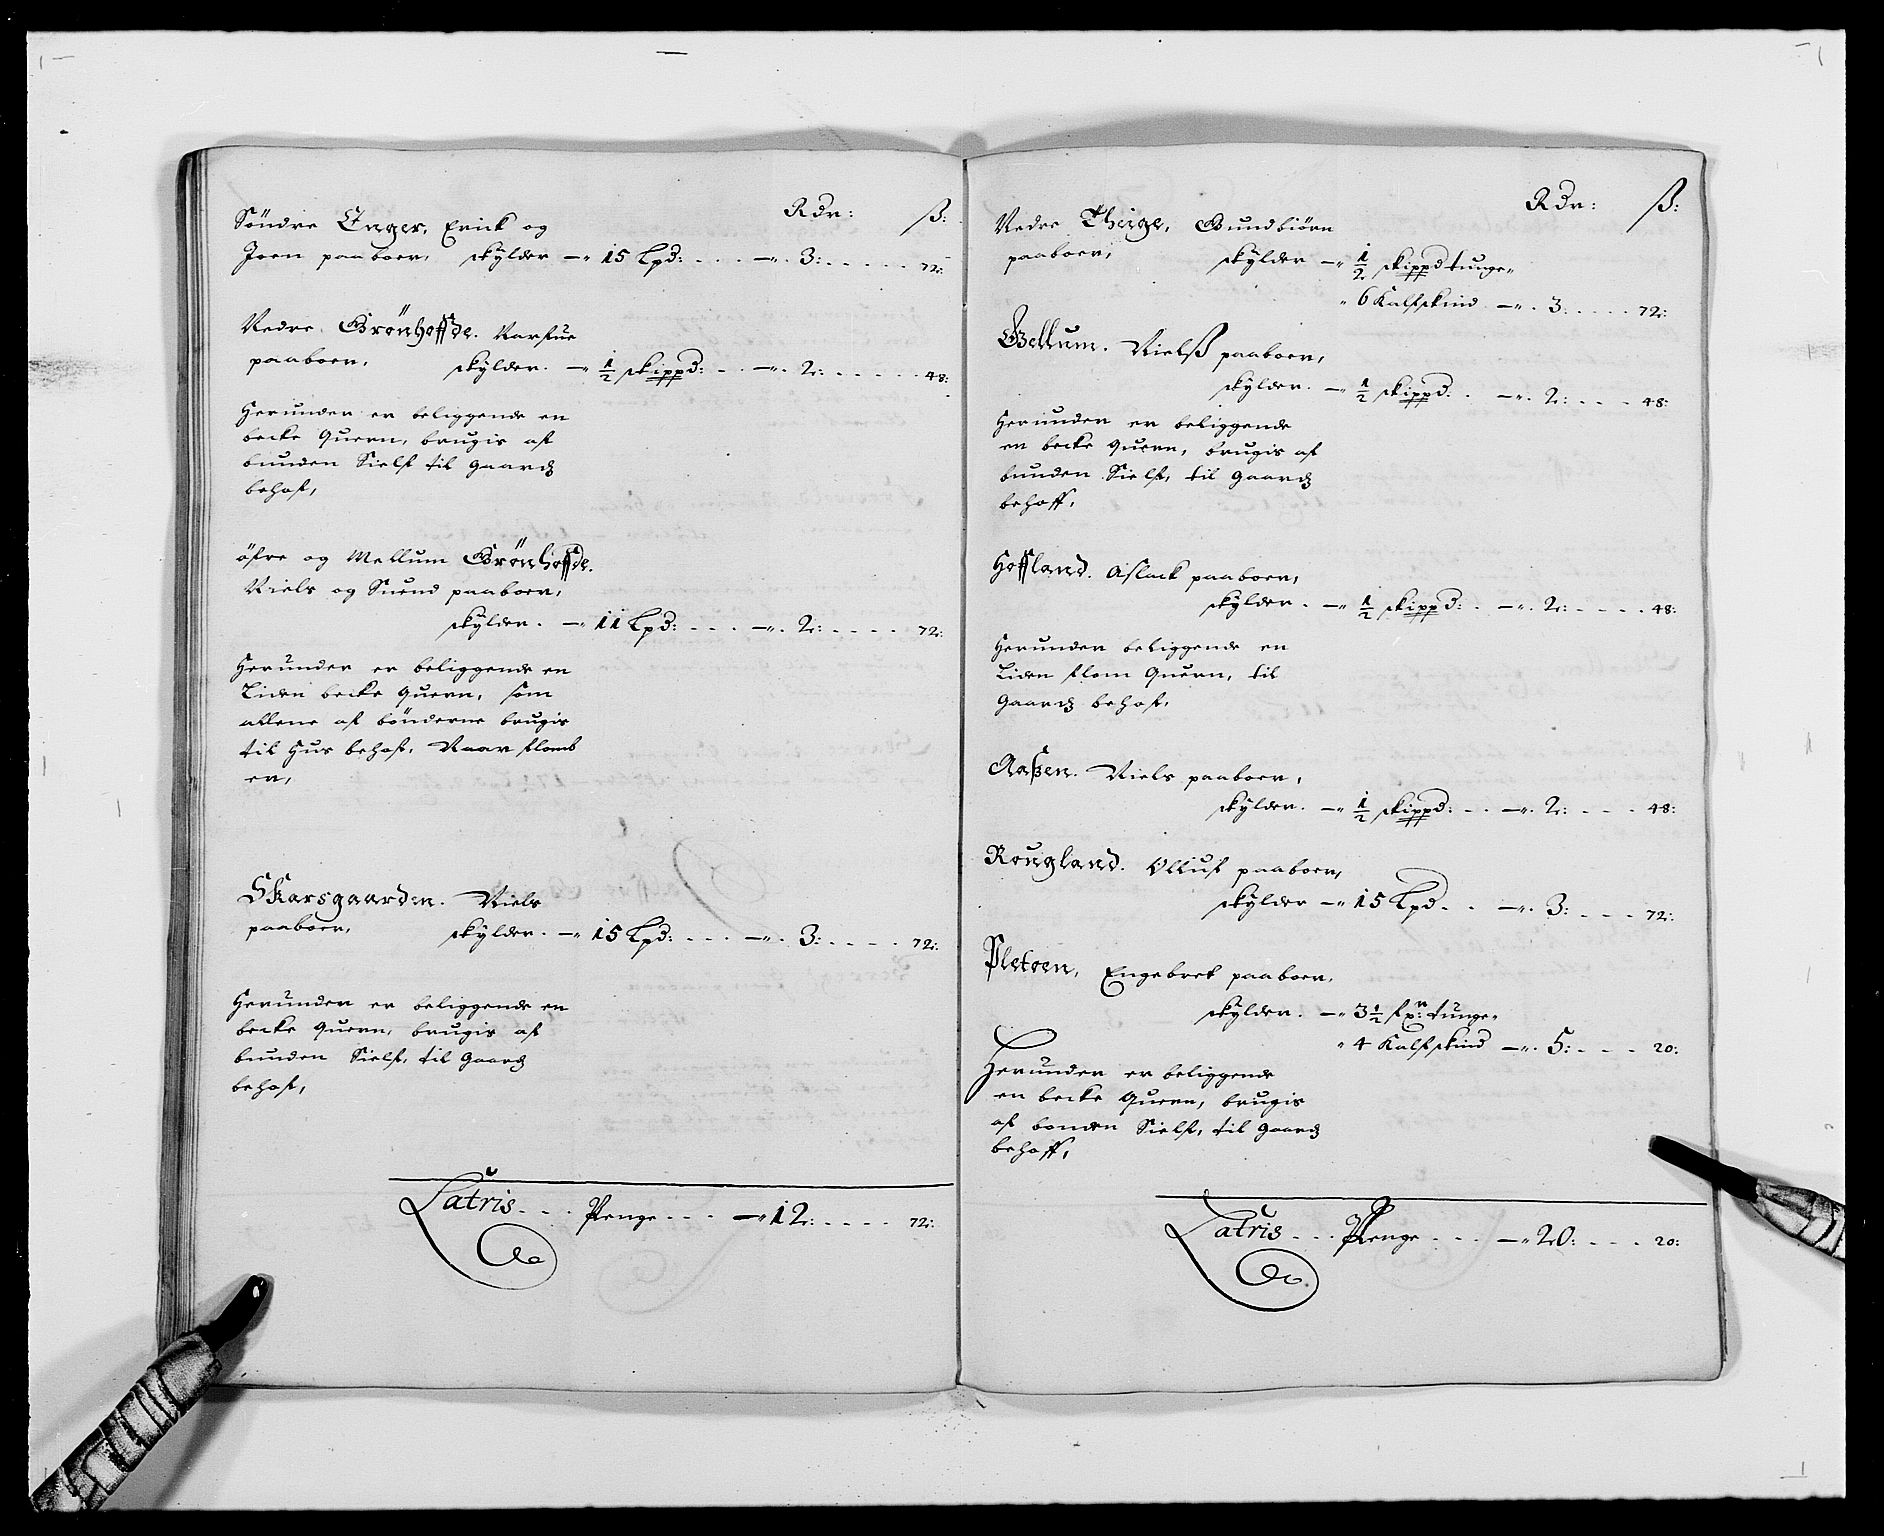 Rdr: ß:
Söndre Enger, Erick og
Joen paaboer, skylder — 15 Lpd: - - - — 3: - - - - - 72:
Nedre Grönhoffde. Narfue
paaboer, skylder. — ½ skippd: - - — 2: - - - - - 48:
Herunder er beliggende en
becke Quern, brugis af
bunden Sielf til Gaardz
behof,
öfre og Mellum Grönhoffde.
Niels og Suend paaboer,
skylder. — 11 Lpd: - - - — 2: - - - - 72:
Herunder er beliggende en
Liden becke Quern, som
allene af bönderne brugis
til Hus behof, Naar flomb
er,
Skarsgaarden. Niels
paaboer, skylder. — 15 Lpd: - - - — 3: - - - - 72:
Herunder er beliggende en
becke Quern, brugis af
bunden Sielf, til Gaardz
behof,
Latris - - - Penge - - - — 12: - - - - 72:
Rdr: ß:
Nedre Theige, Gundbiörn
paaboer, skylder — ½ skippd tunge
6 Kalfskind — 3: - - - - 72:
Gellum. Nielß paaboer,
skylder. — ½ skippd: - — 2: - - - 48:
Herunder er beliggende
en becke Quern, brugis af
bunden Sielf, til Gaardz
behoff,
Hoffland. Aslack paaboer,
skylder. — ½ skippd: - — 2: - - - - 48:
Herunder beliggende en
Liden flom Quern, til
Gaardz behof,
Aaßen. Niels paaboer,
skylder. — ½ skippd: - - — 2: - - - 48:
Rougland. Olluf paaboer,
skylder — 15 Lpd - - — 3: - - - 72:
Pletoen, Engebret paaboer,
skylder. — 3½ fr: tunge
4 Kalfskind — 5: - - - 20:
Herunder er beliggende
en becke Quern, brugis
af bonden Sielf, til Gaardz
behoff,
Latris - - - Penge - - - — 20: - - - 20: